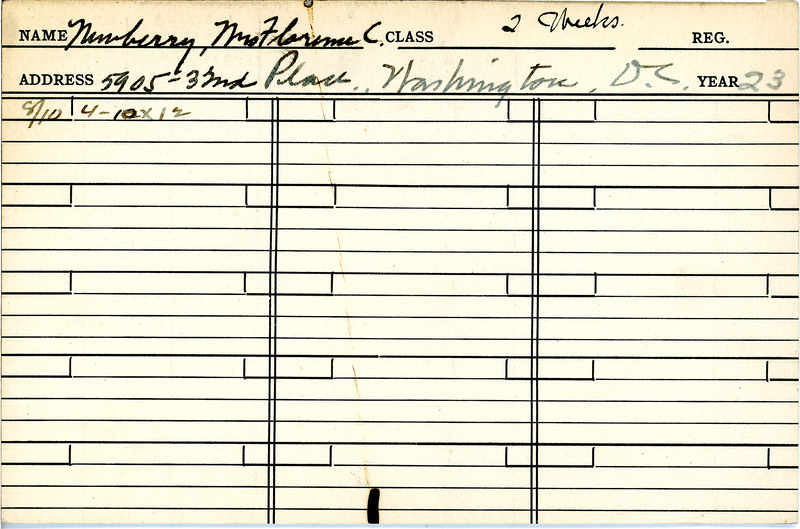 NAME Newberry, Mrs Florence C. CLASS 2 Weeks. REG.
ADDRESS 5905-32nd Place, Washington, D.C. YEAR 23
8/10 4-10x12